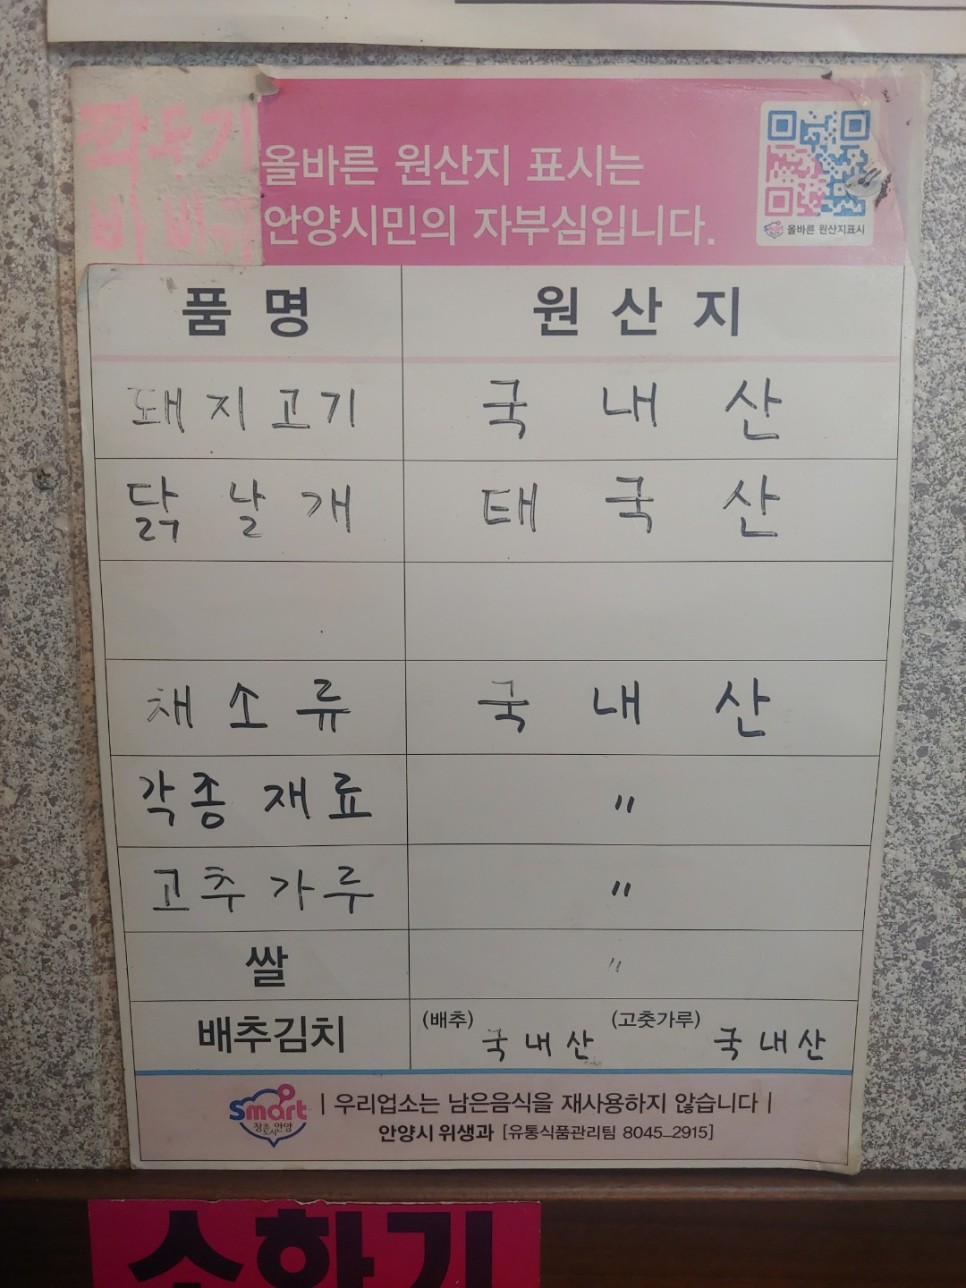 깍두기
올바른 원산지 표시는
안양시민의 자부심입니다.
올바른 원산지표시
품명 원산지
돼지고기 국내산
닭날개 태국산
채소류 국내산
각종 재료 〃
고추가루 〃
쌀 〃
배추김치 (배추) 국내산 (고춧가루) 국내산
smart | 우리업소는 남은음식을 재사용하지 않습니다 |
안양시 위생과 [유통식품관리팀 8045-2915]
소화기